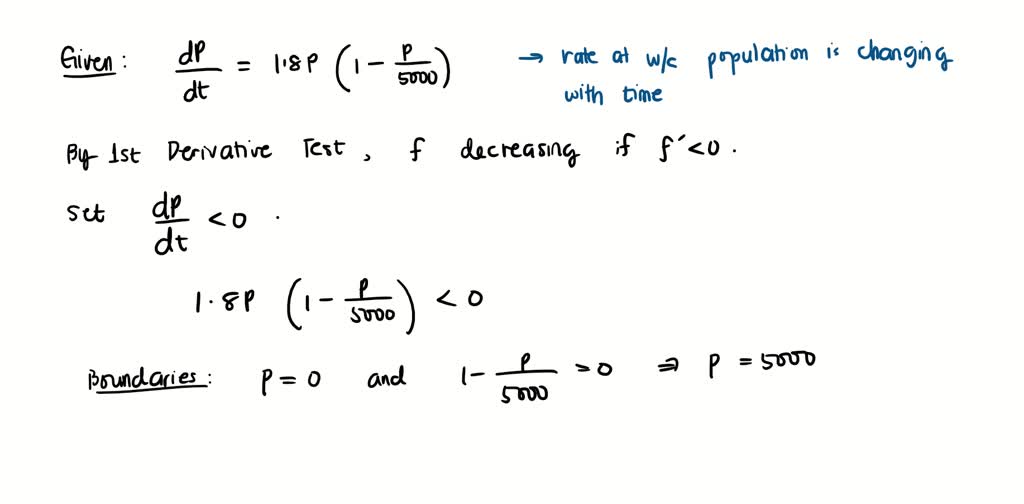 Given: dP/dt = 1.8P (1 - P/5000) → rate at w/c population is changing
with time
By 1st Derivative Test, f decreasing if f' < 0.
Set dP/dt < 0.
1.8P (1 - P/5000) < 0
Boundaries: P = 0 and 1 - P/5000 = 0 ⇒ P = 5000